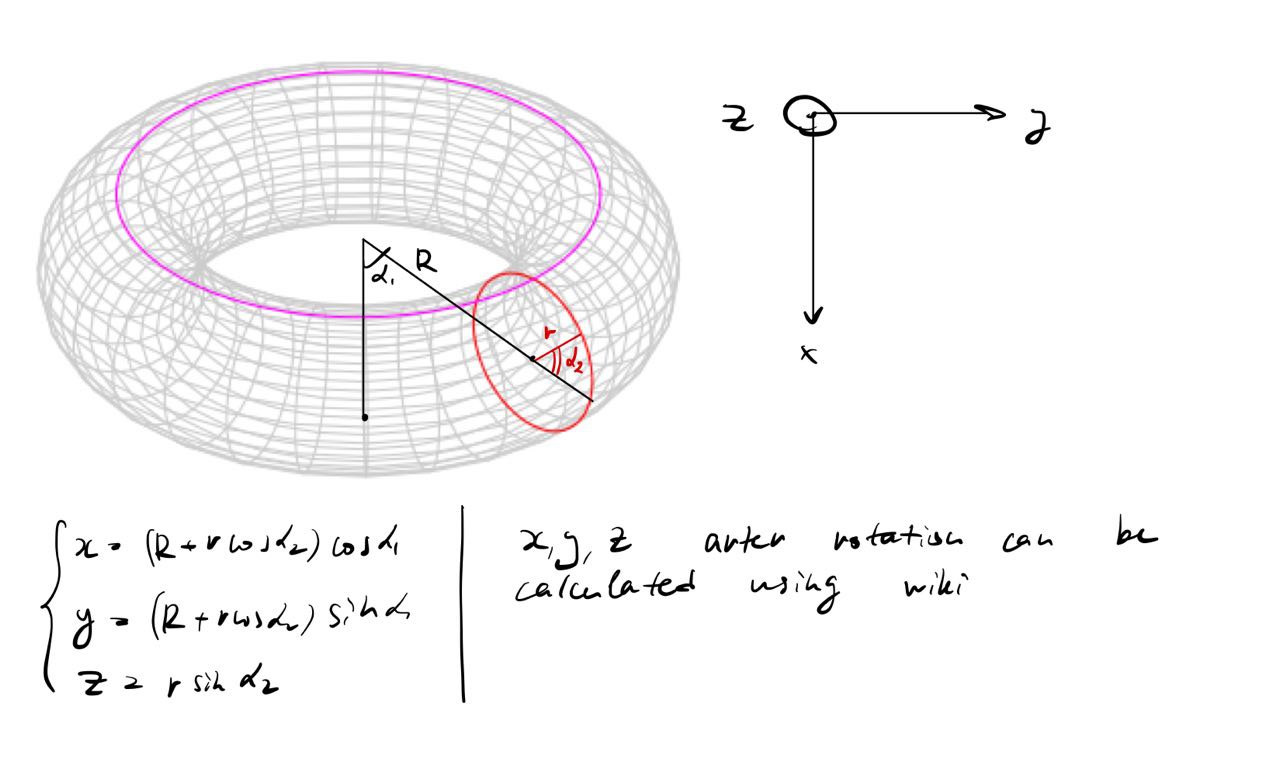 z
y
R
α₁
r
α₂
x
x = (R + r cos α₂) cos α₁
y = (R + r cos α₂) sin α₁
z = r sin α₂
x, y, z after rotation can be
calculated using wiki